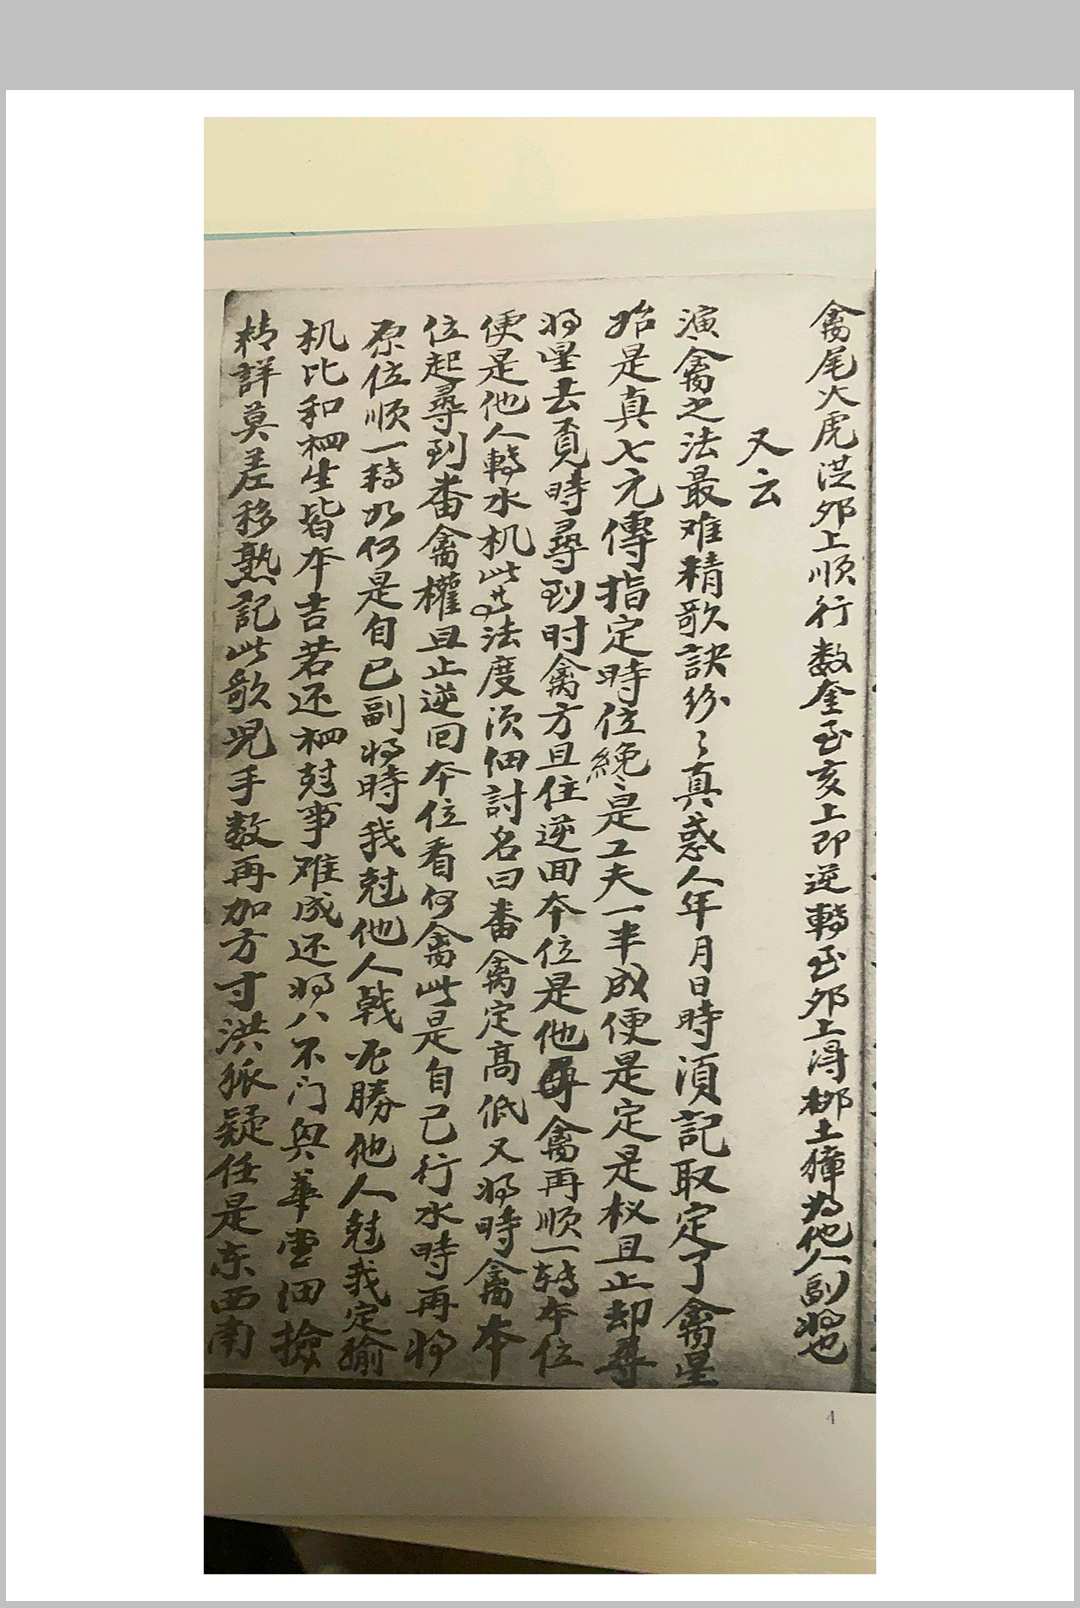 禽尾火虎洪夘上順行数奎至亥上即逆轉至夘上得柳土獐為他人副将也
又云
演禽之法最难精歌訣紛〻真惑人年月日時湏記取定了禽星
始是真七元傳指定時位絶是工夫一半成便是定是权且止却尋
将星去覓時尋到时禽方且住逆回本位是他番禽再順一轉本位
便是他人轉水机此其法度须細討名曰番禽定高低又将時禽本
位起尋到番禽權且止逆回本位看何禽此是自己行水時再将
原位順一轉如何是自己副将時我尅他人戰必勝他人尅我定输
机比和相生皆本吉若还相尅事难成还将八門與華雲细撿
精詳莫差移熟記此歌児手数再加方寸洪狐疑任是东西南
4